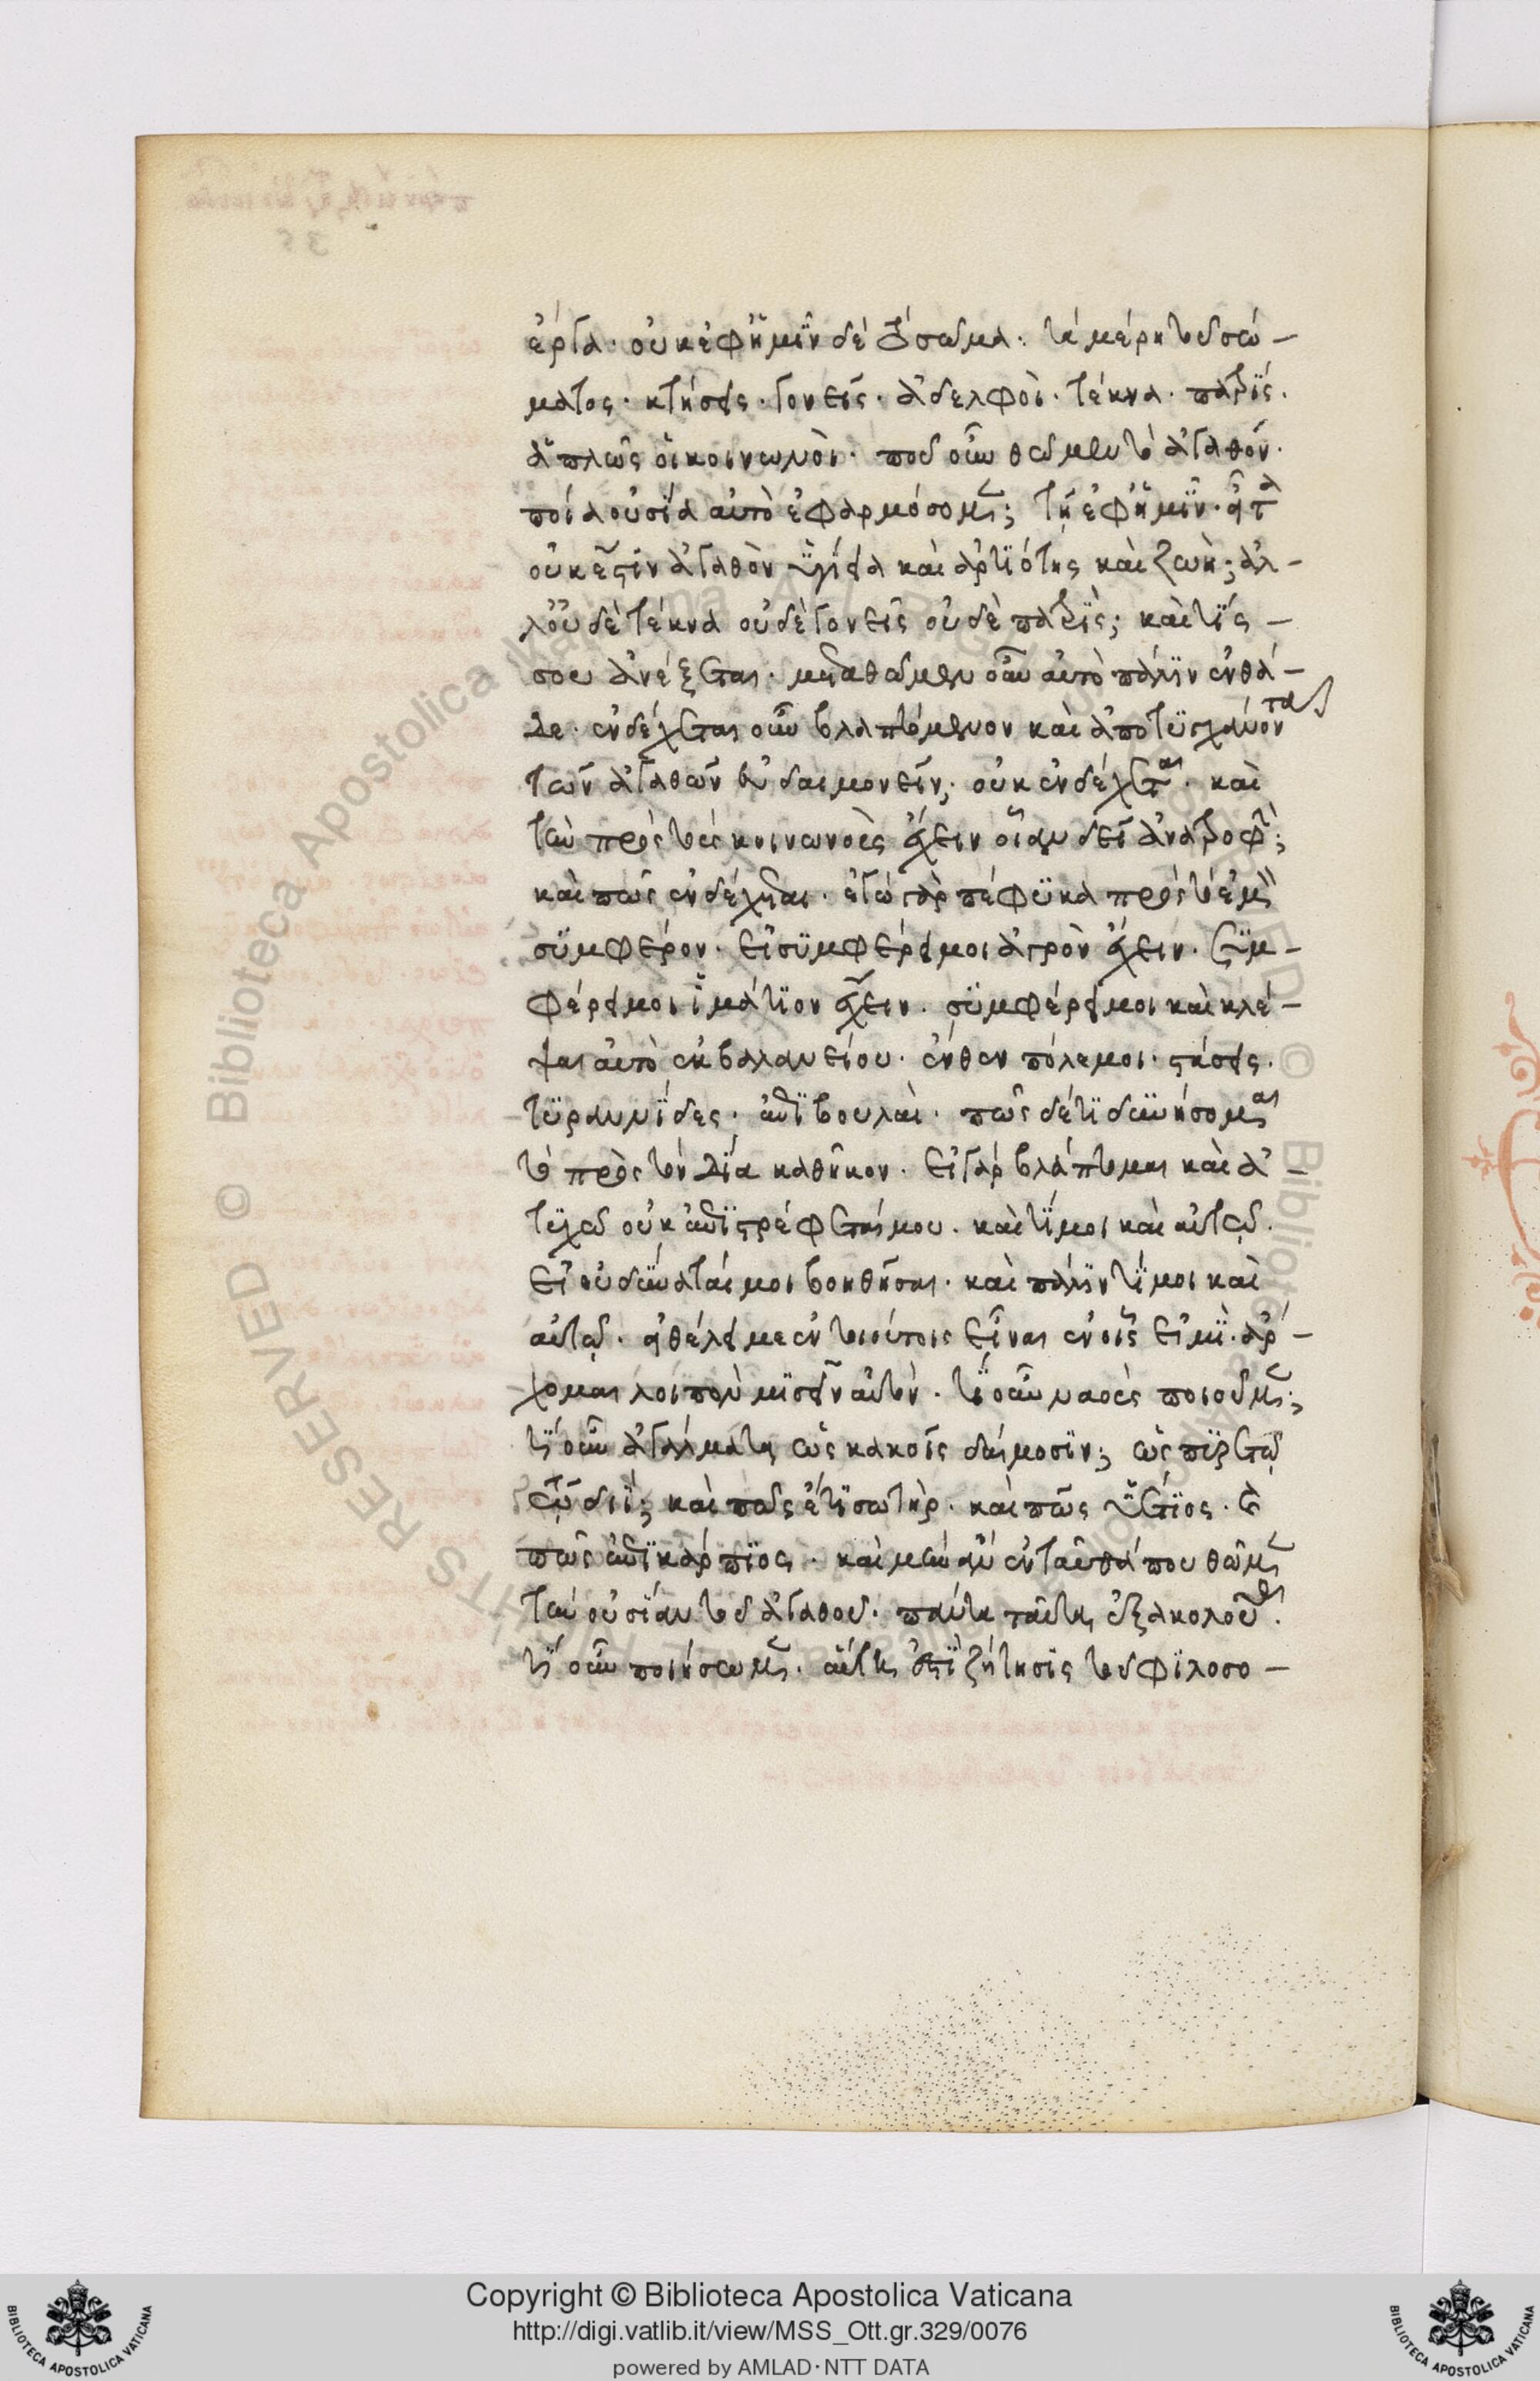 ἔργα· οὐκ ἐφ' ἡμῖν δὲ τὸ σῶμα· τὰ μέρη τοῦ σώ-
ματος· κτήσεις· γονεῖς· ἀδελφοὶ· τέκνα· πατρίς·
ἁπλῶς οἱ κοινωνοὶ· ποῦ οὖν θῶμεν τὸ ἀγαθόν·
ποίᾳ οὐσίᾳ αὐτὸ ἐφαρμόσομεν; τῇ ἐφ' ἡμῖν· εἶτα
οὐκ ἔστιν ἀγαθὸν ὑγίεια καὶ ἀρτιότης καὶ ζωή; ἀλ-
λ' οὐδὲ τέκνα οὐδὲ γονεῖς οὐδὲ πατρίς; καὶ τίς
σου ἀνέξεται· μεταθῶμεν οὖν αὐτὸ πάλιν ἐνθά-
δε· ἐνδέχεται οὖν βλαπτόμενον καὶ ἀποτυγχάνοντα
τῶν ἀγαθῶν εὐδαιμονεῖν; οὐκ ἐνδέχεται· καὶ
τὴν πρὸς τοὺς κοινωνοὺς ἔχειν οἵαν δεῖ ἀναστροφήν;
καὶ πῶς ἐνδέχεται· ἐγὼ γὰρ πέφυκα πρὸς τὸ ἐμὸν
συμφέρον· εἰ συμφέρει μοι ἀγρὸν ἔχειν· συμ-
φέρει μοι ἱμάτιον ἔχειν· συμφέρει μοι καὶ κλέ-
ψαι αὐτὸ ἐκ βαλανείου· ἔνθεν πόλεμοι· στάσεις·
τυραννίδες· ἐπιβουλαὶ· πῶς δ' ἔτι δυνήσομαι
τὸ πρὸς τὸν Δία καθῆκον· εἰ γὰρ βλάπτομαι καὶ ἀ-
τυχῶ οὐκ ἐπιστρέφεταί μου· καὶ τί μοι καὶ αὐτῷ·
εἰ οὐ δύναταί μοι βοηθῆσαι· καὶ πάλιν τί μοι καὶ
αὐτῷ· εἰ θέλει με ἐν τοιούτοις εἶναι ἐν οἷς εἰμί· ἄρ-
χομαι λοιπὸν μισεῖν αὐτόν· τί οὖν ναοὺς ποιοῦμεν;
τί οὖν ἀγάλματα ὡς κακοῖς δαίμοσιν; ὡς πυρετῷ
τῷ διί; καὶ πῶς ἔτι σωτὴρ· καὶ πῶς ὑέτιος· καὶ
πῶς ἐπικάρπιος· καὶ μὴν ἂν ἐνταῦθά που θῶμεν
τὴν οὐσίαν τοῦ ἀγαθοῦ· πάντα ταῦτα ἐξακολουθεῖ·
τί οὖν ποιήσωμεν· αὕτη ἐστὶ ζήτησις τοῦ φιλοσο-
Copyright © Biblioteca Apostolica Vaticana
http://digi.vatlib.it/view/MSS_Ott.gr.329/0076
powered by AMLAD·NTT DATA